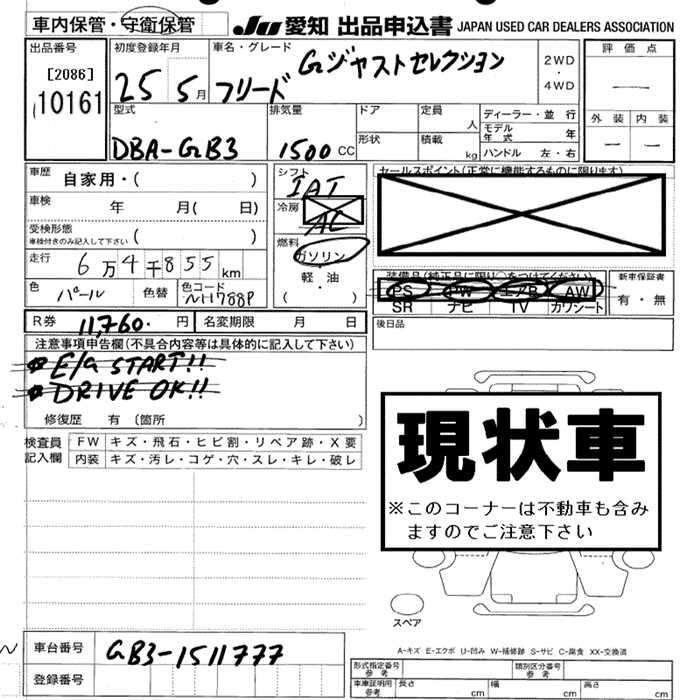 車内保管・守衛保管 JU 愛知 出品申込書 JAPAN USED CAR DEALERS ASSOCIATION
出品番号 初度登録年月 車名・グレード 2WD・4WD 評価点
[2086] 25 5月 フリード Gジャストセレクション —
10161 外装 内装
型式 排気量 ドア 定員 人 ディーラー・並行 — —
DBA-GB3 1500 CC 形状 積載 kg モデル年式 年
ハンドル 左・右
車歴 自家用・( ) シフト IAT セールスポイント(正常に機能するものに限ります)
車検 年 月( 日) 冷房 AC
受検形態 車検付きのみ記入して下さい ( ) 燃料 ガソリン
走行 6万4千855km 軽・油
装備品(純正品に限り○をつけてください) 新車保証書
色 パール 色替 色コード NH788P ( ) PS PW エアB AW 有・無
SR ナビ TV カワシート
R券 11,760. 円 名変期限 月 日 後日品
注意事項申告欄(不具合内容等は具体的に記入して下さい)
E/G START!!
DRIVE OK!!
修復歴 有 (箇所
現状車
※このコーナーは不動車も含み
ますのでご注意下さい
検査員記入欄 FW キズ・飛石・ヒビ割・リペア跡・X要
内装 キズ・汚レ・コゲ・穴・スレ・キレ・破レ
スペア
車台番号 GB3-1511777
登録番号
A-キズ E-エクボ U-凹み W-補修跡 S-サビ C-腐食 XX-交換済
形式指定番号 類別区分番号
車庫証明用参考 長さ cm 幅 cm 高さ cm